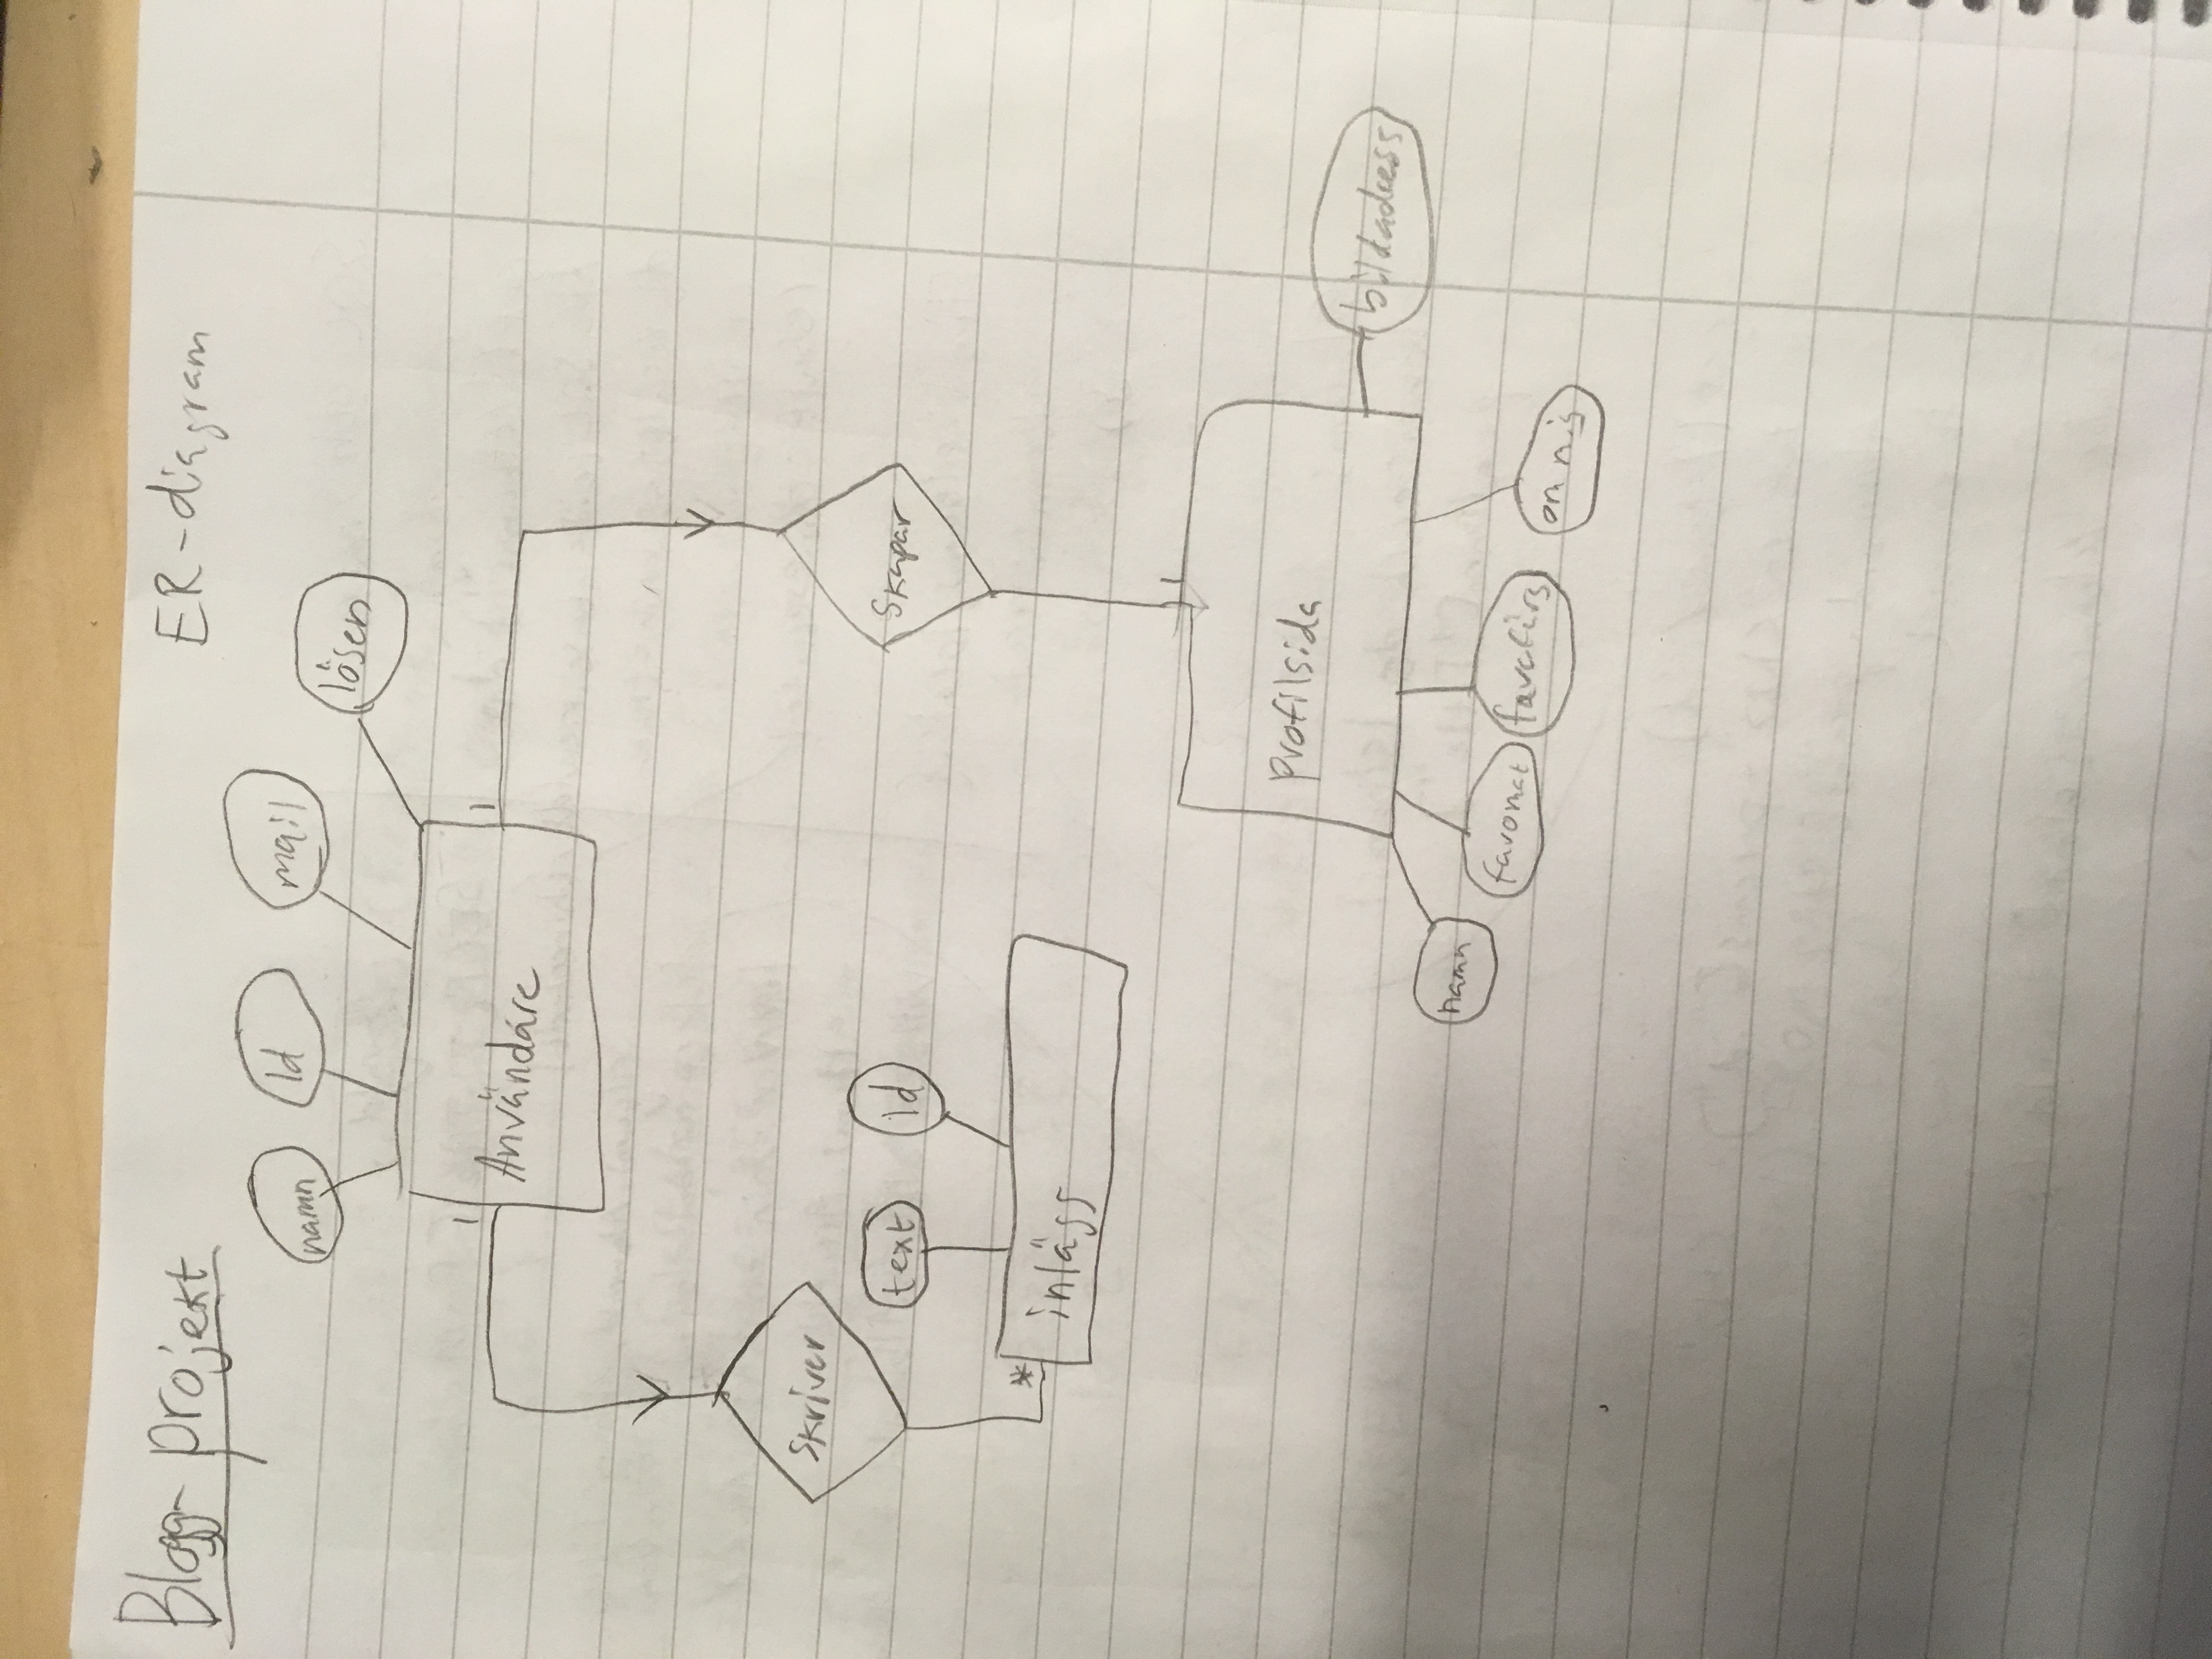 Blogg-projekt
ER-diagram
namn
Id
mail
lösen
1
1
Användare
skriver
text
Id
skapar
*
inlägg
1
profilsida
bildadress
namn
favomat
om mig